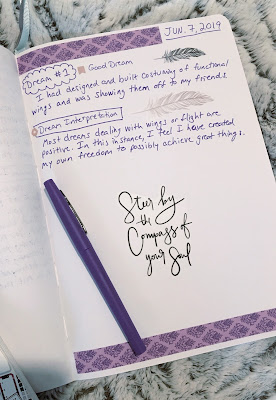 JUN. 7, 2019
Dream #1
Good Dream
I had designed and built costumey of functional
wings and was showing them off to my friends
Dream Interpretation
Most dreams dealing with wings or flight are
positive. In this instance, I feel I have created
my own freedom to possibly achieve great things.
Steer by
the
Compass of
your Soul